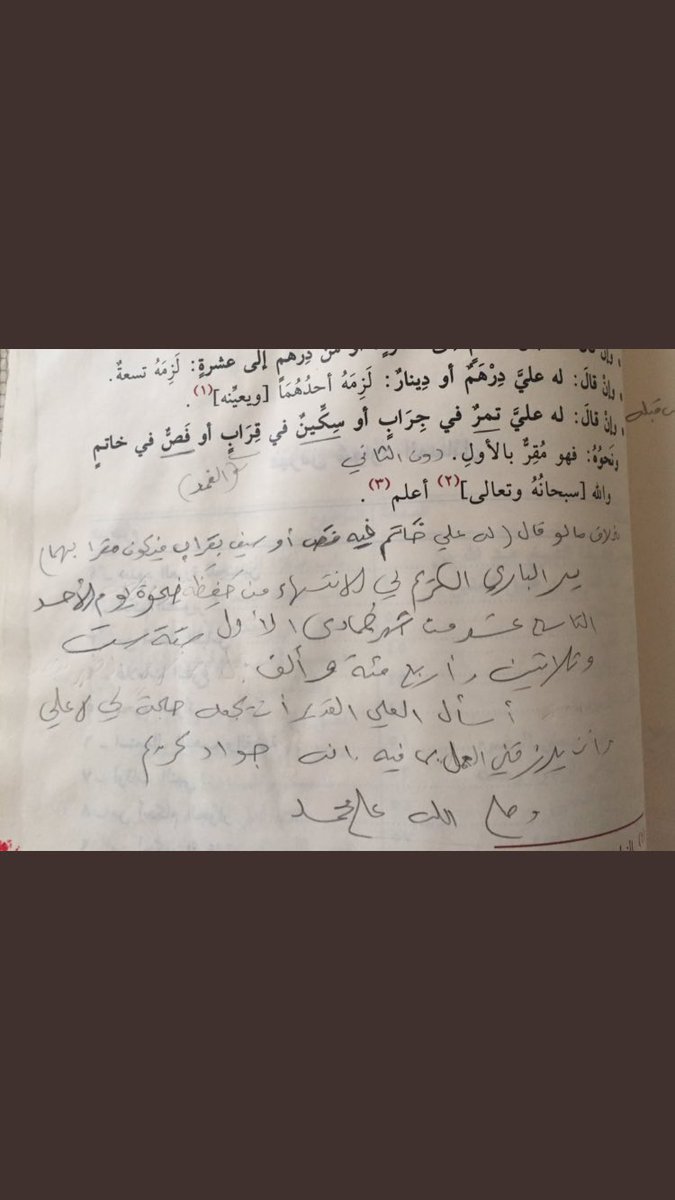 درهم إلى عشرةٍ: لَزِمَهُ تسعةٌ.
وإنْ قالَ: له عليَّ دِرْهَمٌ أو دِينارٌ: لَزِمَهُ أحدُهُمَا [ويعيِّنه](١).
وإنْ قالَ: له عليَّ تمرٌ في جِرَابٍ أو سِكِّينٌ في قِرَابٍ أو فَصٌّ في خاتمٍ
ونَحوُهُ: فهو مُقِرٌّ بالأولِ. دون الثاني (الغمد)
والله [سبحانَهُ وتعالى](٢) أعلم(٣).
بخلاف ما لو قال (له علي خاتم فيه فص أو سيف بقراب فيكون مقرا بهما
يسر الباري الكريم لي الانتهاء من حفظه ضحوة يوم الأحد
التاسع عشر من شهر جمادى الأول سنة ست
وثلاثين وأربع مئة وألف:
أسأل العلي القدير أن يجعله حجة لي لا علي
وأن يرزقني العمل بما فيه إنه جواد كريم
وصلى الله على محمد